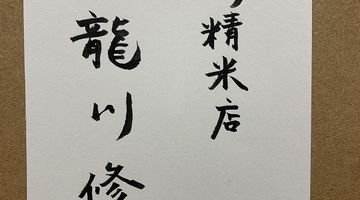 精米店
龍川修